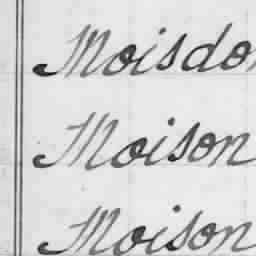 Moisdon
Moison
Moison